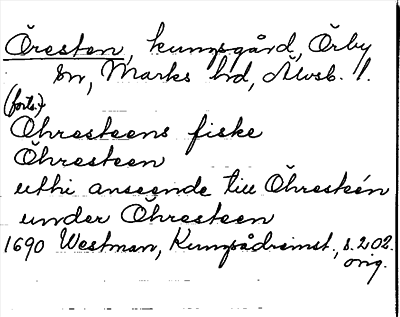 Öresten, kungsgård, Örby
sn, Marks hd, Älvsb. l.
(forts.)
Öhresteens fiske
Öhresteen
uthi anseende till Öhresteén
under Öhresteen
1690 Westman, Kungsådreinst., s. 202.
orig.